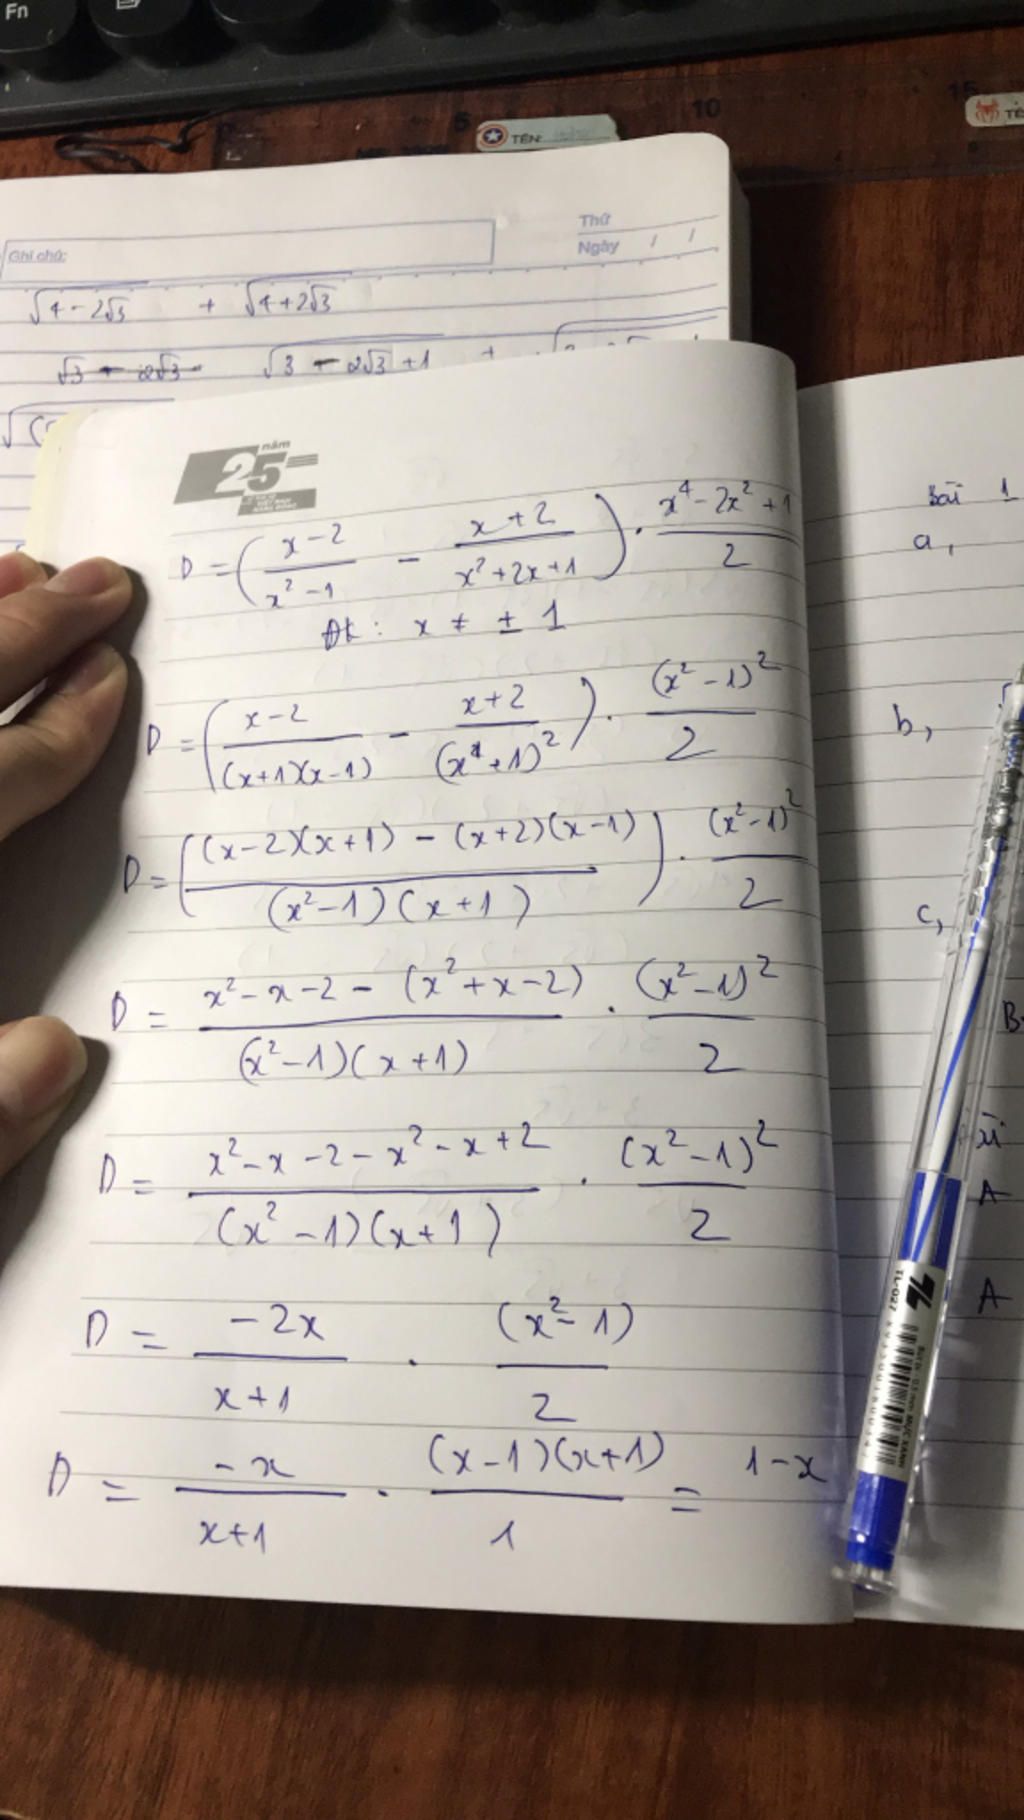 Fn
5
10
15
TÊN:
TÊ
Ghi chú:
Thứ
Ngày / /
√(4-2√3) + √(4+2√3)
√(3-2√3+1) +
năm
25
D = ((x-2)/(x²-1) - (x+2)/(x²+2x+1)) . (x⁴-2x²+1)/2
ĐK: x ≠ ± 1
D = ((x-2)/((x+1)(x-1)) - (x+2)/(x+1)²) . (x²-1)²/2
D = (((x-2)(x+1) - (x+2)(x-1))/((x²-1)(x+1))) . (x²-1)²/2
D = (x²-x-2-(x²+x-2))/((x²-1)(x+1)) . (x²-1)²/2
D = (x²-x-2-x²-x+2)/((x²-1)(x+1)) . (x²-1)²/2
D = (-2x)/(x+1) . (x²-1)/2
D = (-x)/(x+1) . ((x-1)(x+1))/1 = 1-x
Bài 1
a,
b,
c,
B
A
A
TL-027